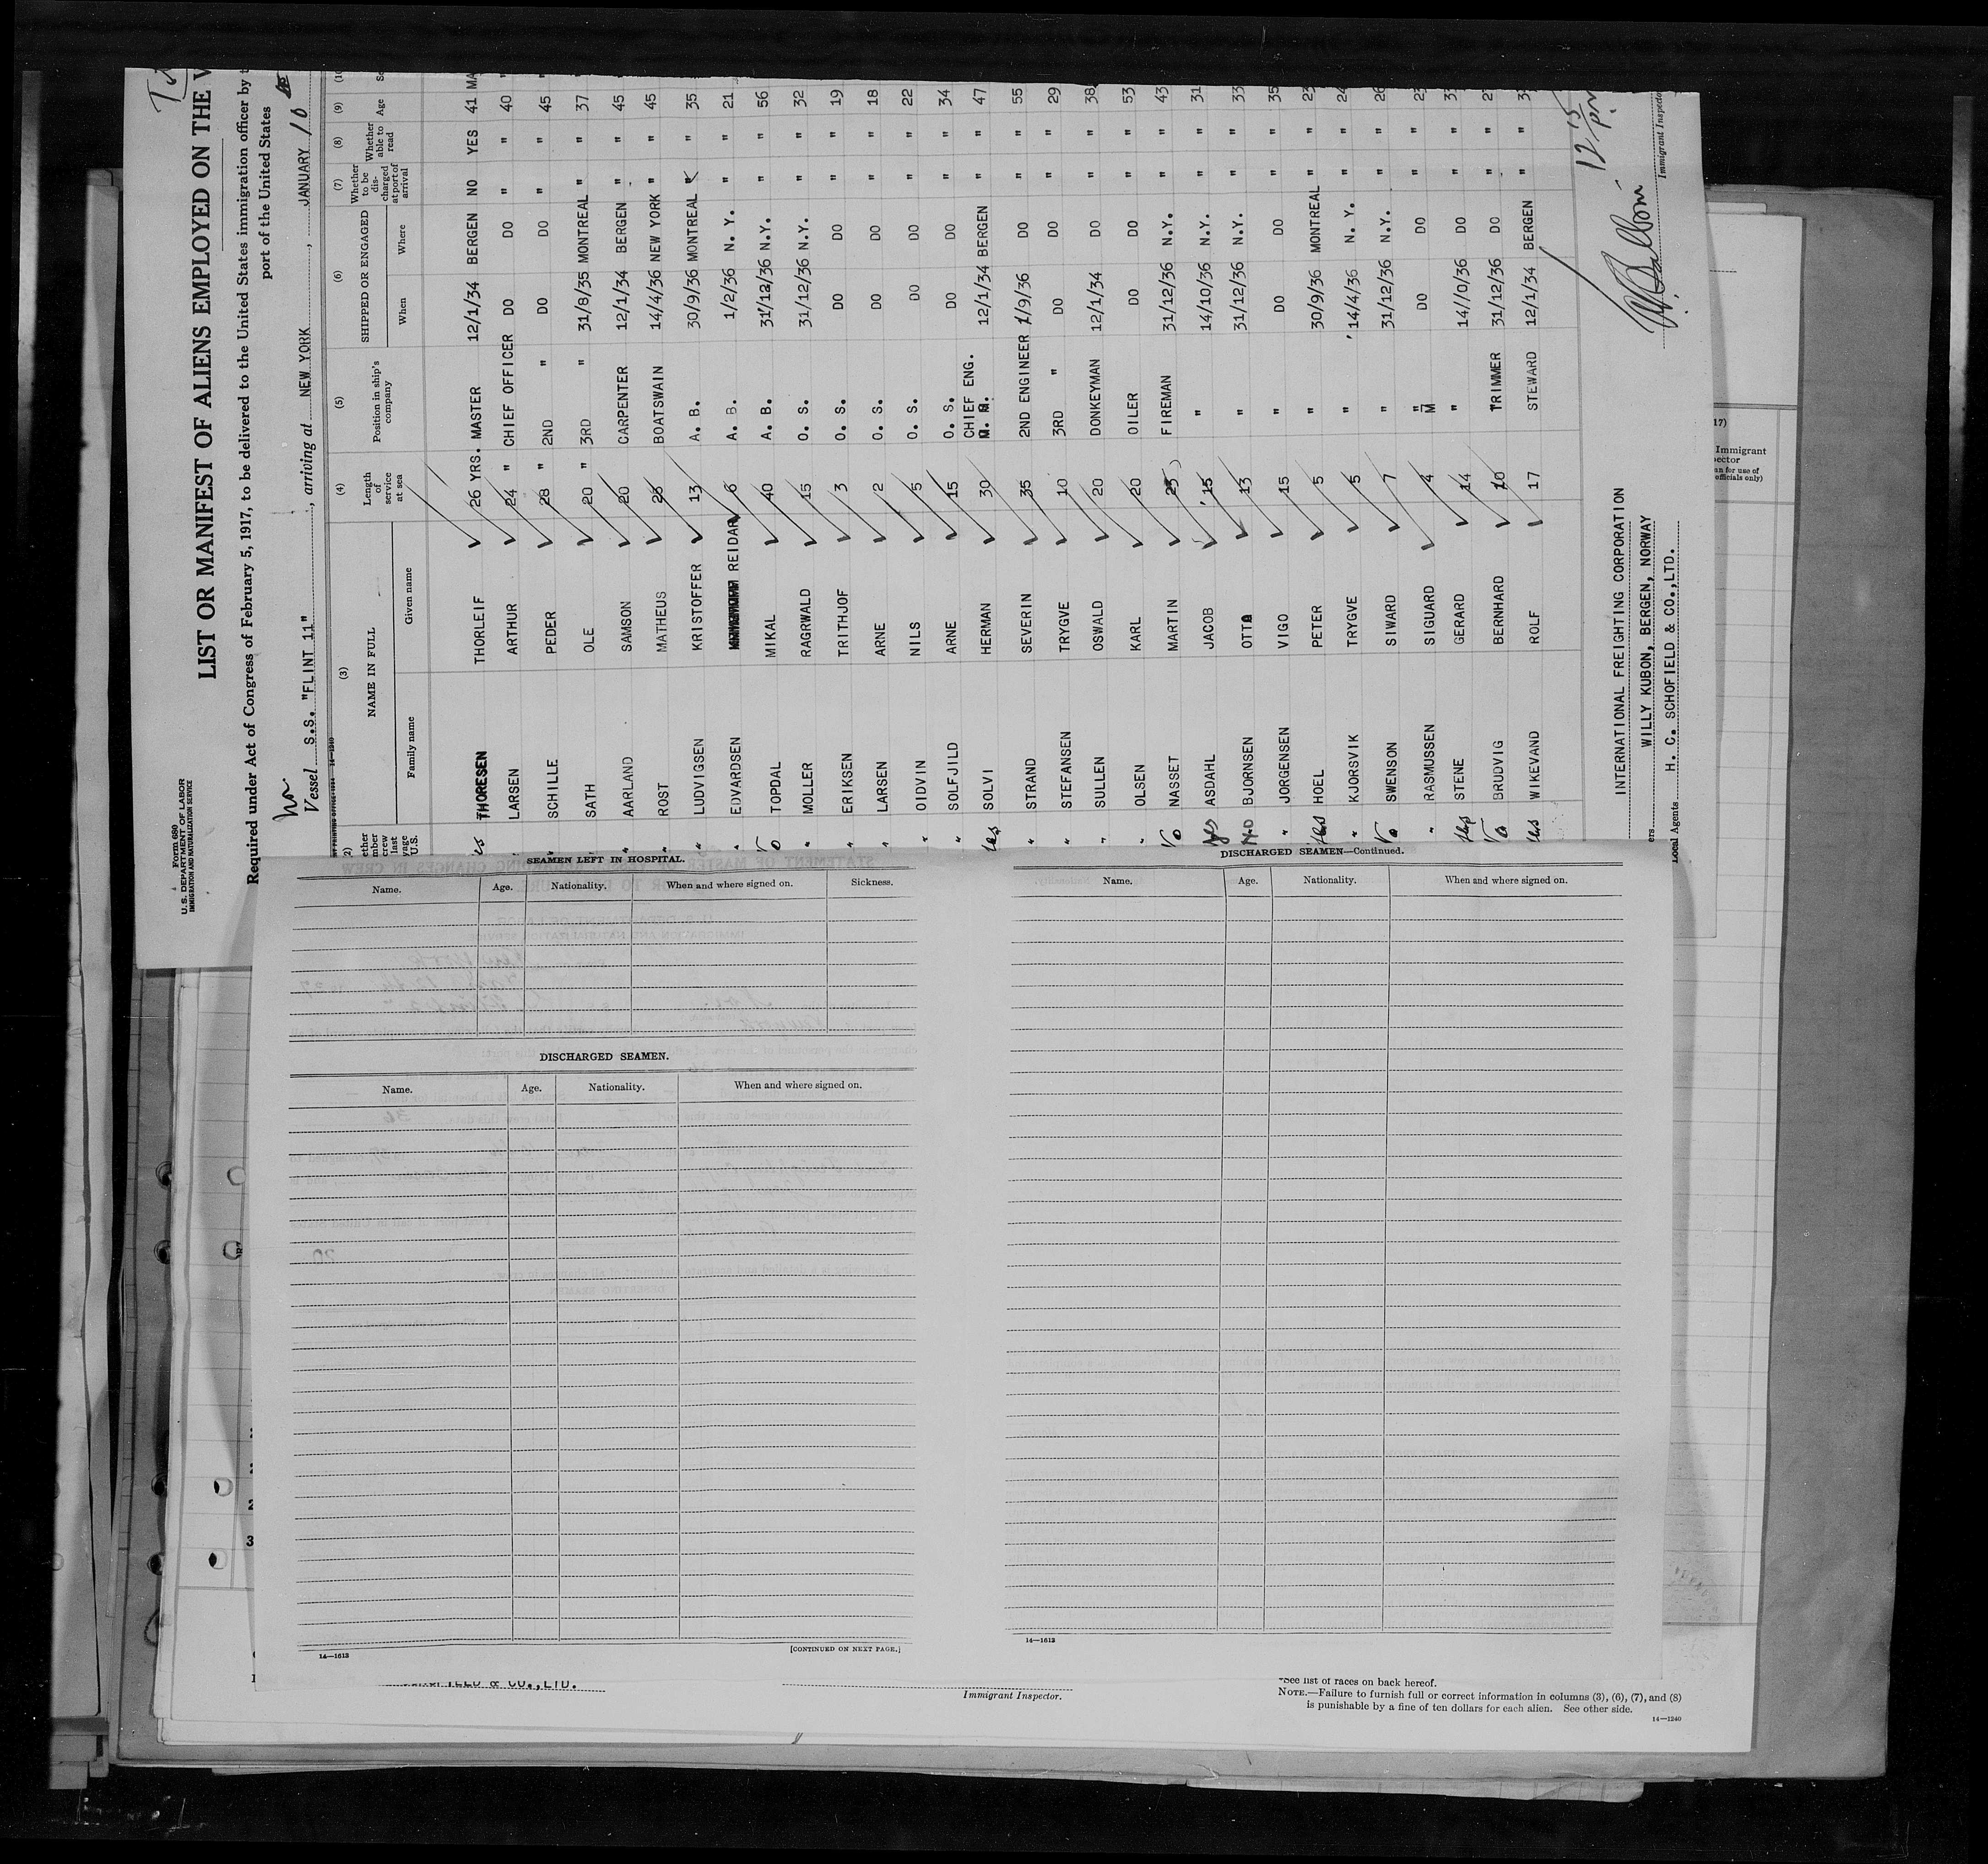 Form 680
U. S. DEPARTMENT OF LABOR
IMMIGRATION AND NATURALIZATION SERVICE
LIST OR MANIFEST OF ALIENS EMPLOYED ON THE V
Required under Act of Congress of February 5, 1917, to be delivered to the United States immigration officer by t
port of the United States
Vessel S.S. "FLINT 11", arriving at NEW YORK, JANUARY 10
(3) (4) (5) (6) (7) (8) (9)
NAME IN FULL Length of service at sea Position in ship's company SHIPPED OR ENGAGED Whether to be discharged at port of arrival Whether able to read Age
Family name Given name When Where
THORESEN THORLEIF 26 YRS. MASTER 12/1/34 BERGEN NO YES 41 MA
LARSEN ARTHUR 24 " CHIEF OFFICER DO DO " " 40 "
SCHILLE PEDER 28 " 2ND " DO DO " " 45 "
SATH OLE 20 " 3RD " 31/8/35 MONTREAL " " 37 "
AARLAND SAMSON 20 CARPENTER 12/1/34 BERGEN " " 45 "
ROST MATHEUS 26 BOATSWAIN 14/4/36 NEW YORK " " 45 "
" LUDVIGSEN KRISTOFFER 13 A. B. 30/9/36 MONTREAL " " 35 "
" EDVARDSEN REIDAR 6 A. B. 1/2/36 N. Y. " " 21
TOPDAL MIKAL 40 A. B. 31/12/36 N.Y. " " 56
" MOLLER RAGRWALD 15 O. S. 31/12/36 N.Y. " " 32
" ERIKSEN TRITHJOF 3 O. S. DO DO " " 19
" LARSEN ARNE 2 O. S. DO DO " " 18
" OIDVIN NILS 5 O. S. DO DO " " 22
" SOLFJILD ARNE 15 O. S. DO DO " " 34
Yes SOLVI HERMAN 30 CHIEF ENG. 12/1/34 BERGEN " " 47
" STRAND SEVERIN 35 2ND ENGINEER 1/9/36 DO " " 55
" STEFANSEN TRYGVE 10 3RD " DO DO " " 29
" SULLEN OSWALD 20 DONKEYMAN 12/1/34 DO " " 38
" OLSEN KARL 20 OILER DO DO " " 53
No NASSET MARTIN 25 FIREMAN 31/12/36 N.Y. " " 43
Yes ASDAHL JACOB 15 " 14/10/36 N.Y. " " 31
No BJORNSEN OTTO 13 " 31/12/36 N.Y. " " 33
" JORGENSEN VIGO 15 " DO DO " " 35
Yes HOEL PETER 5 " 30/9/36 MONTREAL " " 23
" KJORSVIK TRYGVE 5 " 14/4/36 N. Y. " " 24
No SWENSON SIWARD 7 " 31/12/36 N.Y. " " 26
" RASMUSSEN SIGUARD 4 " DO DO " " 23
Yes STENE GERARD 14 " 14/10/36 DO " "
No BRUDVIG BERNHARD 10 TRIMMER 31/12/36 DO " "
Yes WIKEVAND ROLF 17 STEWARD 12/1/34 BERGEN " "
INTERNATIONAL FREIGHTING CORPORATION
WILLY KUBON, BERGEN, NORWAY
Local Agents H. C. SCHOFIELD & CO.,LTD.
12 15 pm
Immigrant Inspector
SEAMEN LEFT IN HOSPITAL.
Name. Age. Nationality. When and where signed on. Sickness.
DISCHARGED SEAMEN.
Name. Age. Nationality. When and where signed on.
[CONTINUED ON NEXT PAGE.]
14—1613
DISCHARGED SEAMEN—Continued.
Name. Age. Nationality. When and where signed on.
14—1613
17)
Immigrant
officials only)
& CO.,LTD.
Immigrant Inspector.
*See list of races on back hereof.
NOTE.—Failure to furnish full or correct information in columns (3), (6), (7), and (8)
is punishable by a fine of ten dollars for each alien. See other side.
14—1240